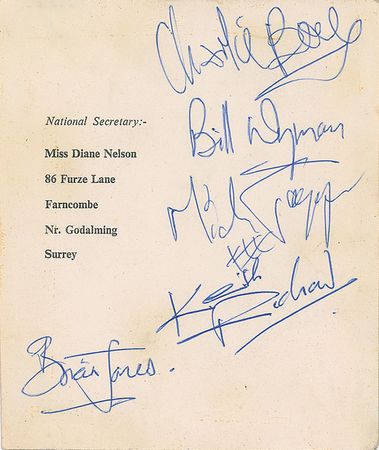 Charlie
National Secretary:-
Miss Diane Nelson
86 Furze Lane
Farncombe
Nr. Godalming
Surrey
Bill Wyman
Mick Jagger
xxx
Keith Richard
Brian Jones.